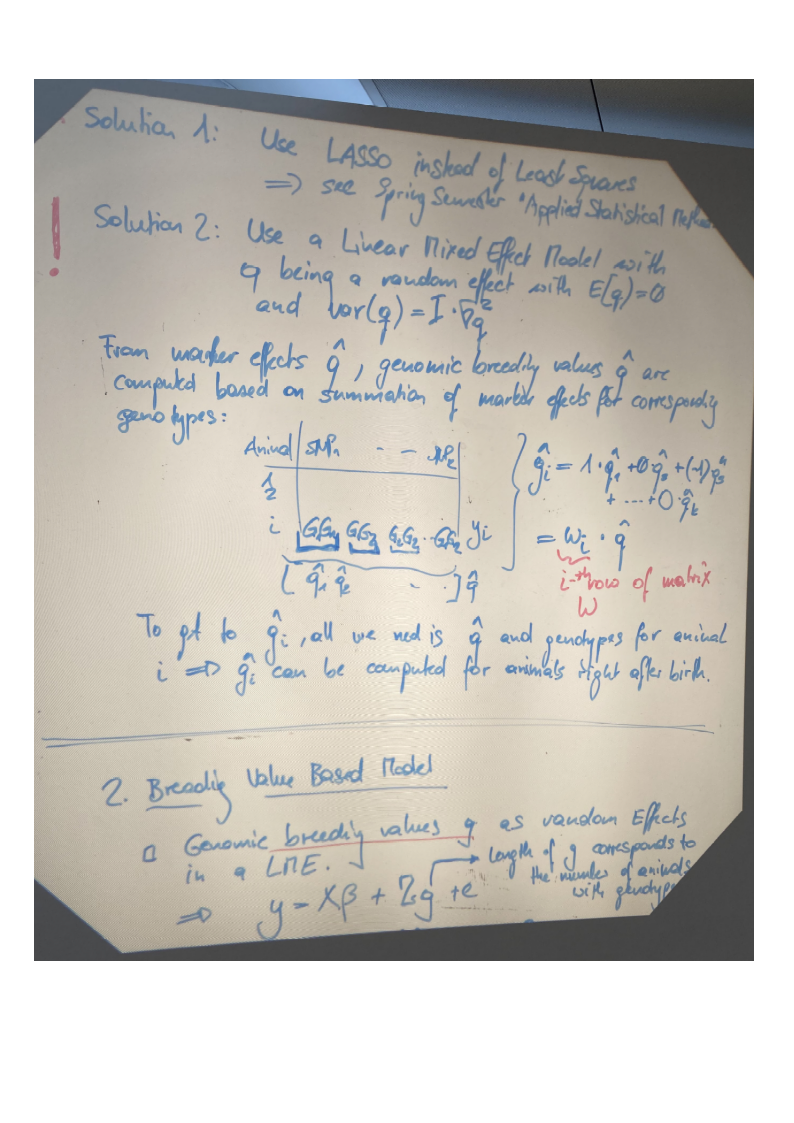 Solution 1: Use LASSO instead of Least Squares
=> see Spring Semester "Applied Statistical
! Solution 2: Use a Linear Mixed Effect Model with
q being a random effect with E[q]=0
and var(q) = I·σq²
From marker effects q̂, genomic breedig values ĝ are
computed based on summation of marker effects for correspondig
genotypes:
Animal SNP1 - - SNPk
1
2
i G1G1 G1G2 G2G2 ·· yi
[ q̂1 q̂k - · ] q̂
ĝi = 1·q̂1 + 0·q̂2 + (-1)q̂3
+ ---- + 0·q̂k
= wi · q̂
i-th row of matrix
W
To get to ĝi, all we need is q̂ and genotypes for animal
i => ĝi can be computed for animals right after birth.
2. Breedig Value Based Model
□ Genomic breedig values g as random Effects
in a LME.
length of g corresponds to
the number of animals
with genotype
=> y = Xβ + Zg + e